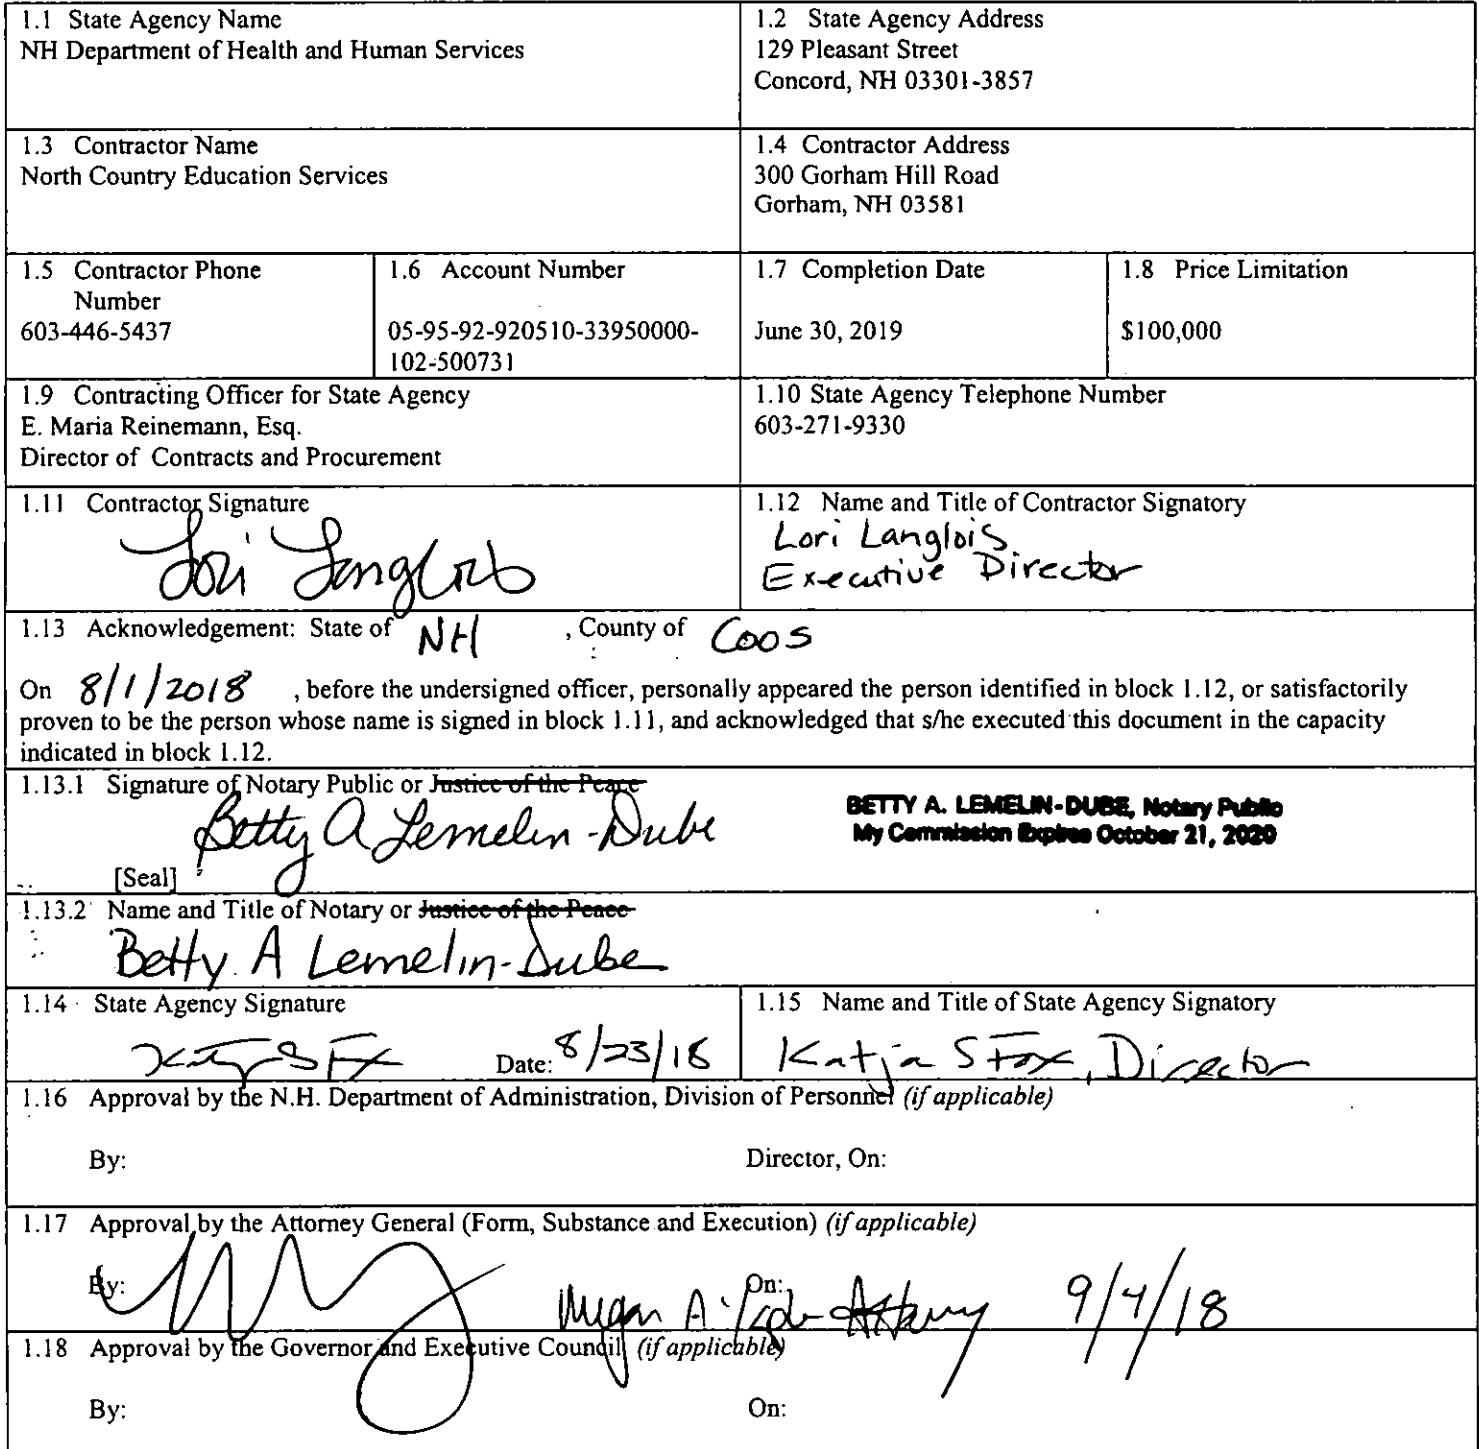 1.1 State Agency Name
NH Department of Health and Human Services
1.2 State Agency Address
129 Pleasant Street
Concord, NH 03301-3857
1.3 Contractor Name
North Country Education Services
1.4 Contractor Address
300 Gorham Hill Road
Gorham, NH 03581
1.5 Contractor Phone
Number
603-446-5437
1.6 Account Number
05-95-92-920510-33950000-
102-500731
1.7 Completion Date
June 30, 2019
1.8 Price Limitation
$100,000
1.9 Contracting Officer for State Agency
E. Maria Reinemann, Esq.
Director of Contracts and Procurement
1.10 State Agency Telephone Number
603-271-9330
1.11 Contractor Signature
Lori Langlois
1.12 Name and Title of Contractor Signatory
Lori Langlois
Executive Director
1.13 Acknowledgement: State of NH , County of Coos
On 8/1/2018 , before the undersigned officer, personally appeared the person identified in block 1.12, or satisfactorily
proven to be the person whose name is signed in block 1.11, and acknowledged that s/he executed this document in the capacity
indicated in block 1.12.
1.13.1 Signature of Notary Public or Justice of the Peace
Betty A Lemelin-Dube
BETTY A. LEMELIN-DUBE, Notary Public
My Commission Expires October 21, 2020
[Seal]
1.13.2 Name and Title of Notary or Justice of the Peace
Betty A Lemelin-Dube
1.14 State Agency Signature
Date: 8/23/18
1.15 Name and Title of State Agency Signatory
Katja S Fox, Director
1.16 Approval by the N.H. Department of Administration, Division of Personnel (if applicable)
By: Director, On:
1.17 Approval by the Attorney General (Form, Substance and Execution) (if applicable)
By: Megan A. On: Attorney 9/4/18
1.18 Approval by the Governor and Executive Council (if applicable)
By: On: